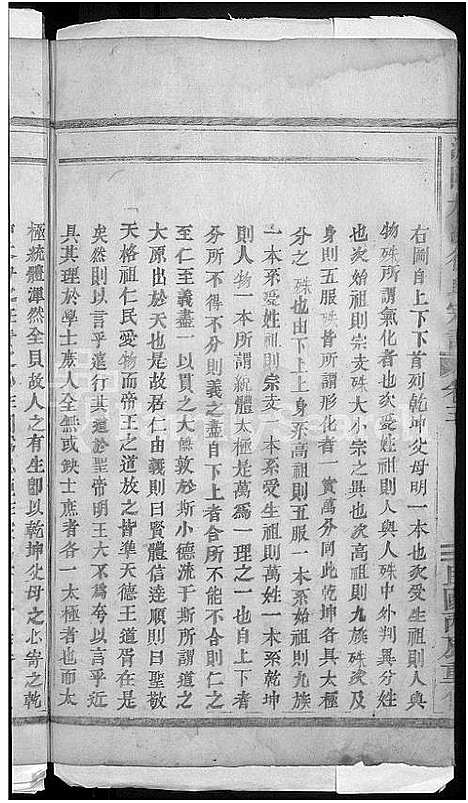 右圖自上下下首列乾坤父母明一本也次受生祖則人與
物殊所謂氣化者也次受姓祖則人與人殊中外判異分姓
也次始祖則宗支殊大小宗之異也次高祖則九族殊次及
身則五服殊皆所謂形化者一實萬分同此乾坤各具太極
分之殊也由下上上身系高祖則五服一本系始祖則九族
一本系受姓祖則宗支一本系受生祖則萬姓一本系乾坤
則人物一本所謂統體太極是萬爲一理之一也自上下者
分所不得不分則義之盡自下上者合所不能不合則仁之
至仁至義盡一以貫之大德敦於斯小德流于斯所謂道之
大原出於天也是故居仁由義則曰賢體信達順則曰聖敬
天格祖仁民愛物而帝王之道放之皆準天德王道胥在是
矣然則以言乎遠行其道於聖帝明王六不爲夸以言乎近
具其理於學士庶人全無或缺士庶者各一太極者也而太
極統體渾然全具故人之有生卽以乾坤父母之上寄之乾